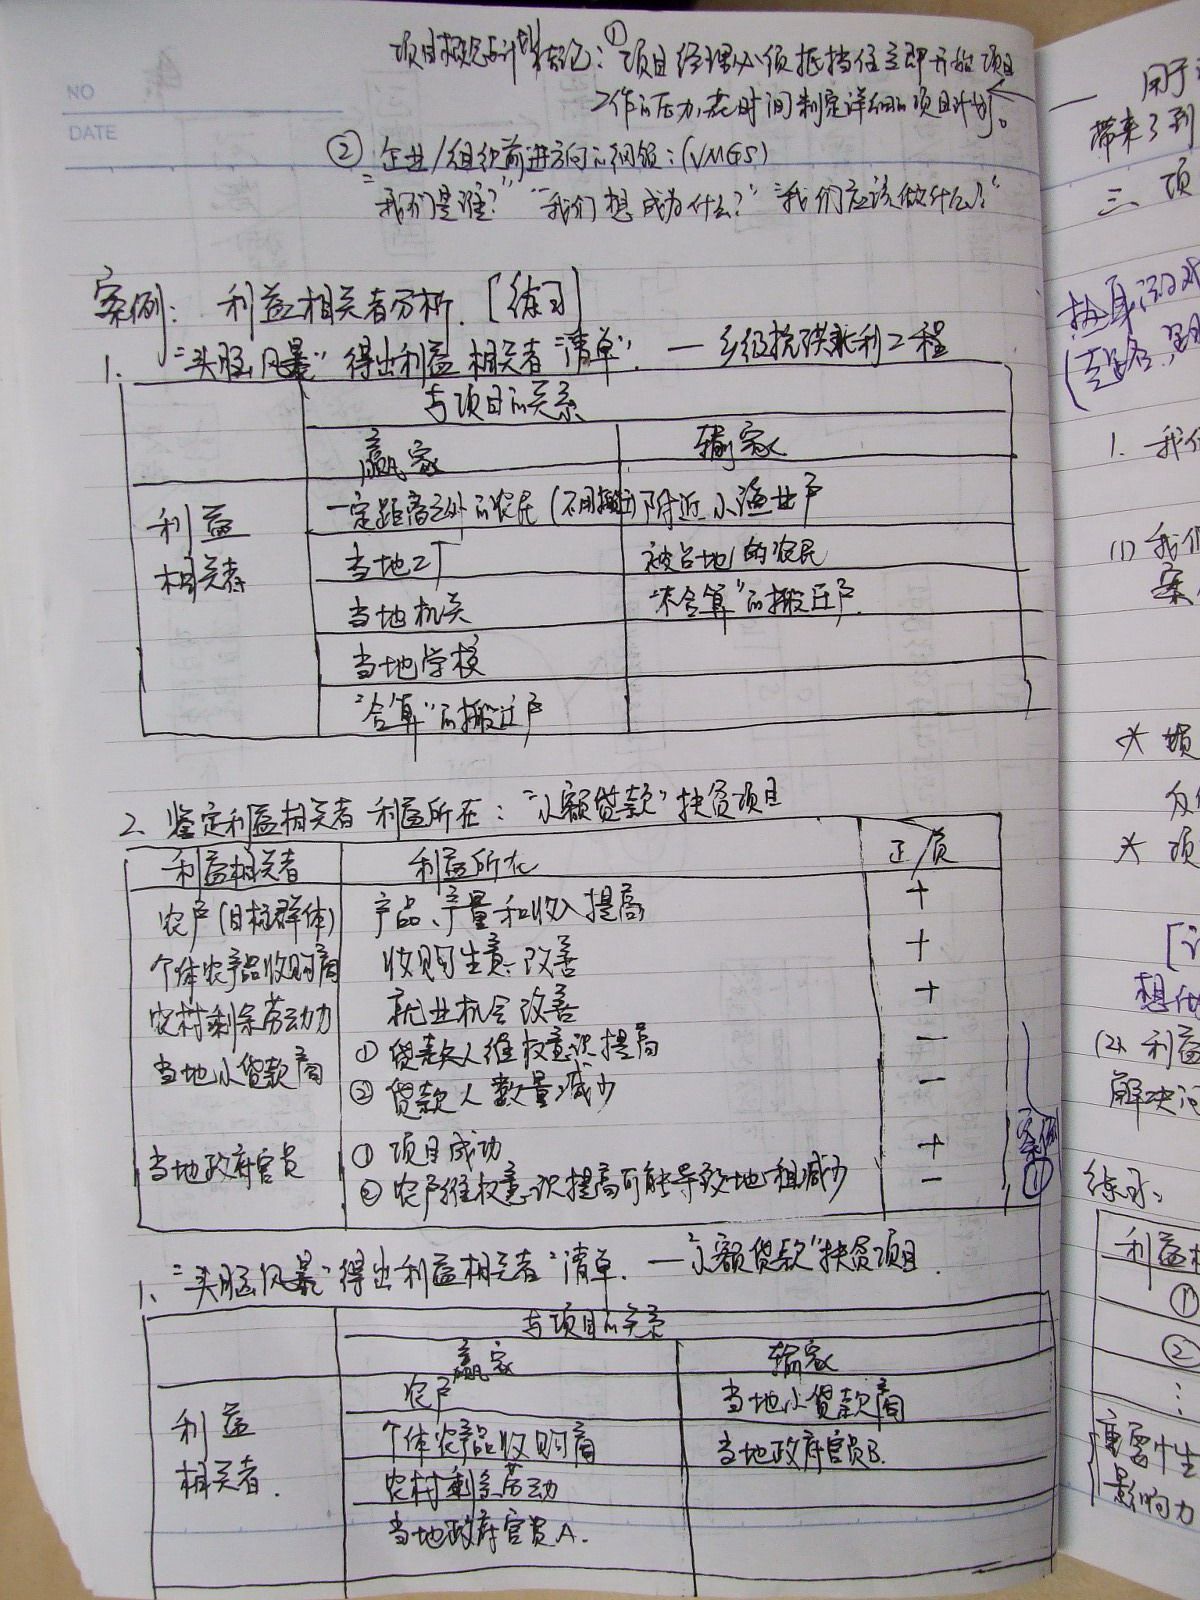 NO
DATE
项目概况与计划核心：①项目经理必须抵挡住立即开始项目
工作的压力，花时间制定详细的项目计划。
② 企业/组织前进方向的纲领：(VMGS)
"我们是谁？" "我们想成为什么？" "我们应该做什么？"
案例：利益相关者分析.［练习］
1、"头脑风暴"得出利益相关者"清单". — 乡级抗洪水利工程
与项目的关系
赢家 输家
利益
相关者
一定距离之外的农民（不用搬迁） 附近小渔业户
当地工厂 被占地的农民
当地机关 "不合算"的搬迁户
当地学校
"合算"的搬迁户
2、鉴定利益相关者利益所在："小额贷款"扶贫项目
利益相关者 利益所在 正/负
农户(目标群体) 产品、产量和收入提高 +
个体农产品收购商 收购生意改善 +
农村剩余劳动力 就业机会改善 +
当地小贷款商 ① 贷款人维权意识提高 −
② 贷款人数量减少 −
当地政府官员 ① 项目成功 +
② 农户维权意识提高可能导致地租减少 −
案例
①
1、"头脑风暴"得出利益相关者"清单. —"小额贷款"扶贫项目.
与项目的关系
赢家 输家
利益
相关者.
农户 当地小贷款商
个体农产品收购商 当地政府官员B.
农村剩余劳动
当地政府官员A.
用于
带来了到
三、项
热身
1. 我们
(1) 我们
案
* 项
* 项
想
(2) 利益
解决
练习：
利益相
①
②
⋮
重要性
影响力